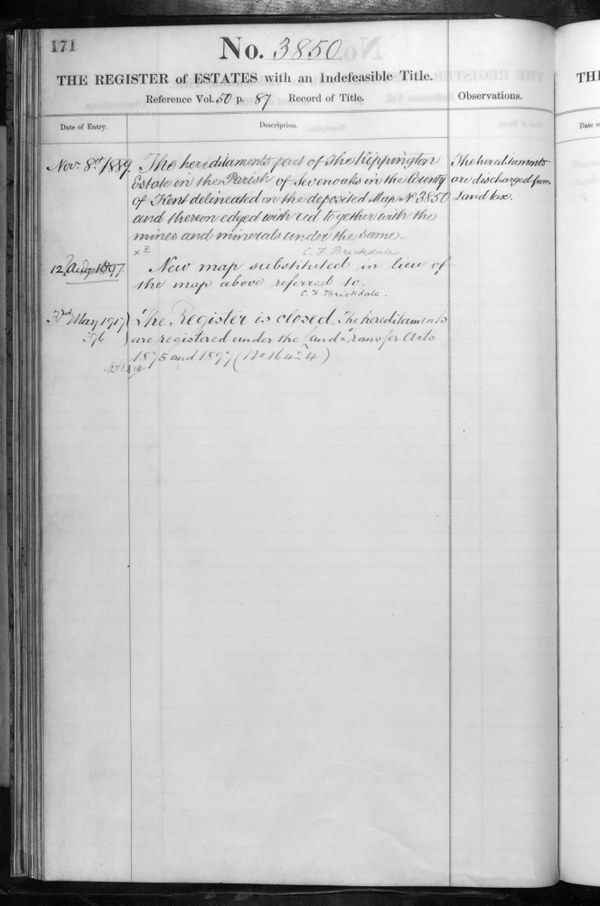 171
No. 3850
THE REGISTER of ESTATES with an Indefeasible Title.
Reference Vol. 50 p. 87 Record of Title.
Observations.
Date of Entry.
Description.
Nov. 8th 1889.
The hereditaments part of The Kippington
Estate in the Parish of Sevenoaks in the County
of Kent delineated on the deposited Map No 3850
and thereon edged with red together with the
mines and minerals under the same.
C. F. Brickdale
The hereditaments
are discharged from
Land tax.
12 Aug 1897.
New map substituted in lieu of
the map above referred to.
C. F. Brickdale.
May 1917
The Register is closed. The hereditaments
are registered under the Land Transfer Acts
1875 and 1897 (No 16424)
THE
Date